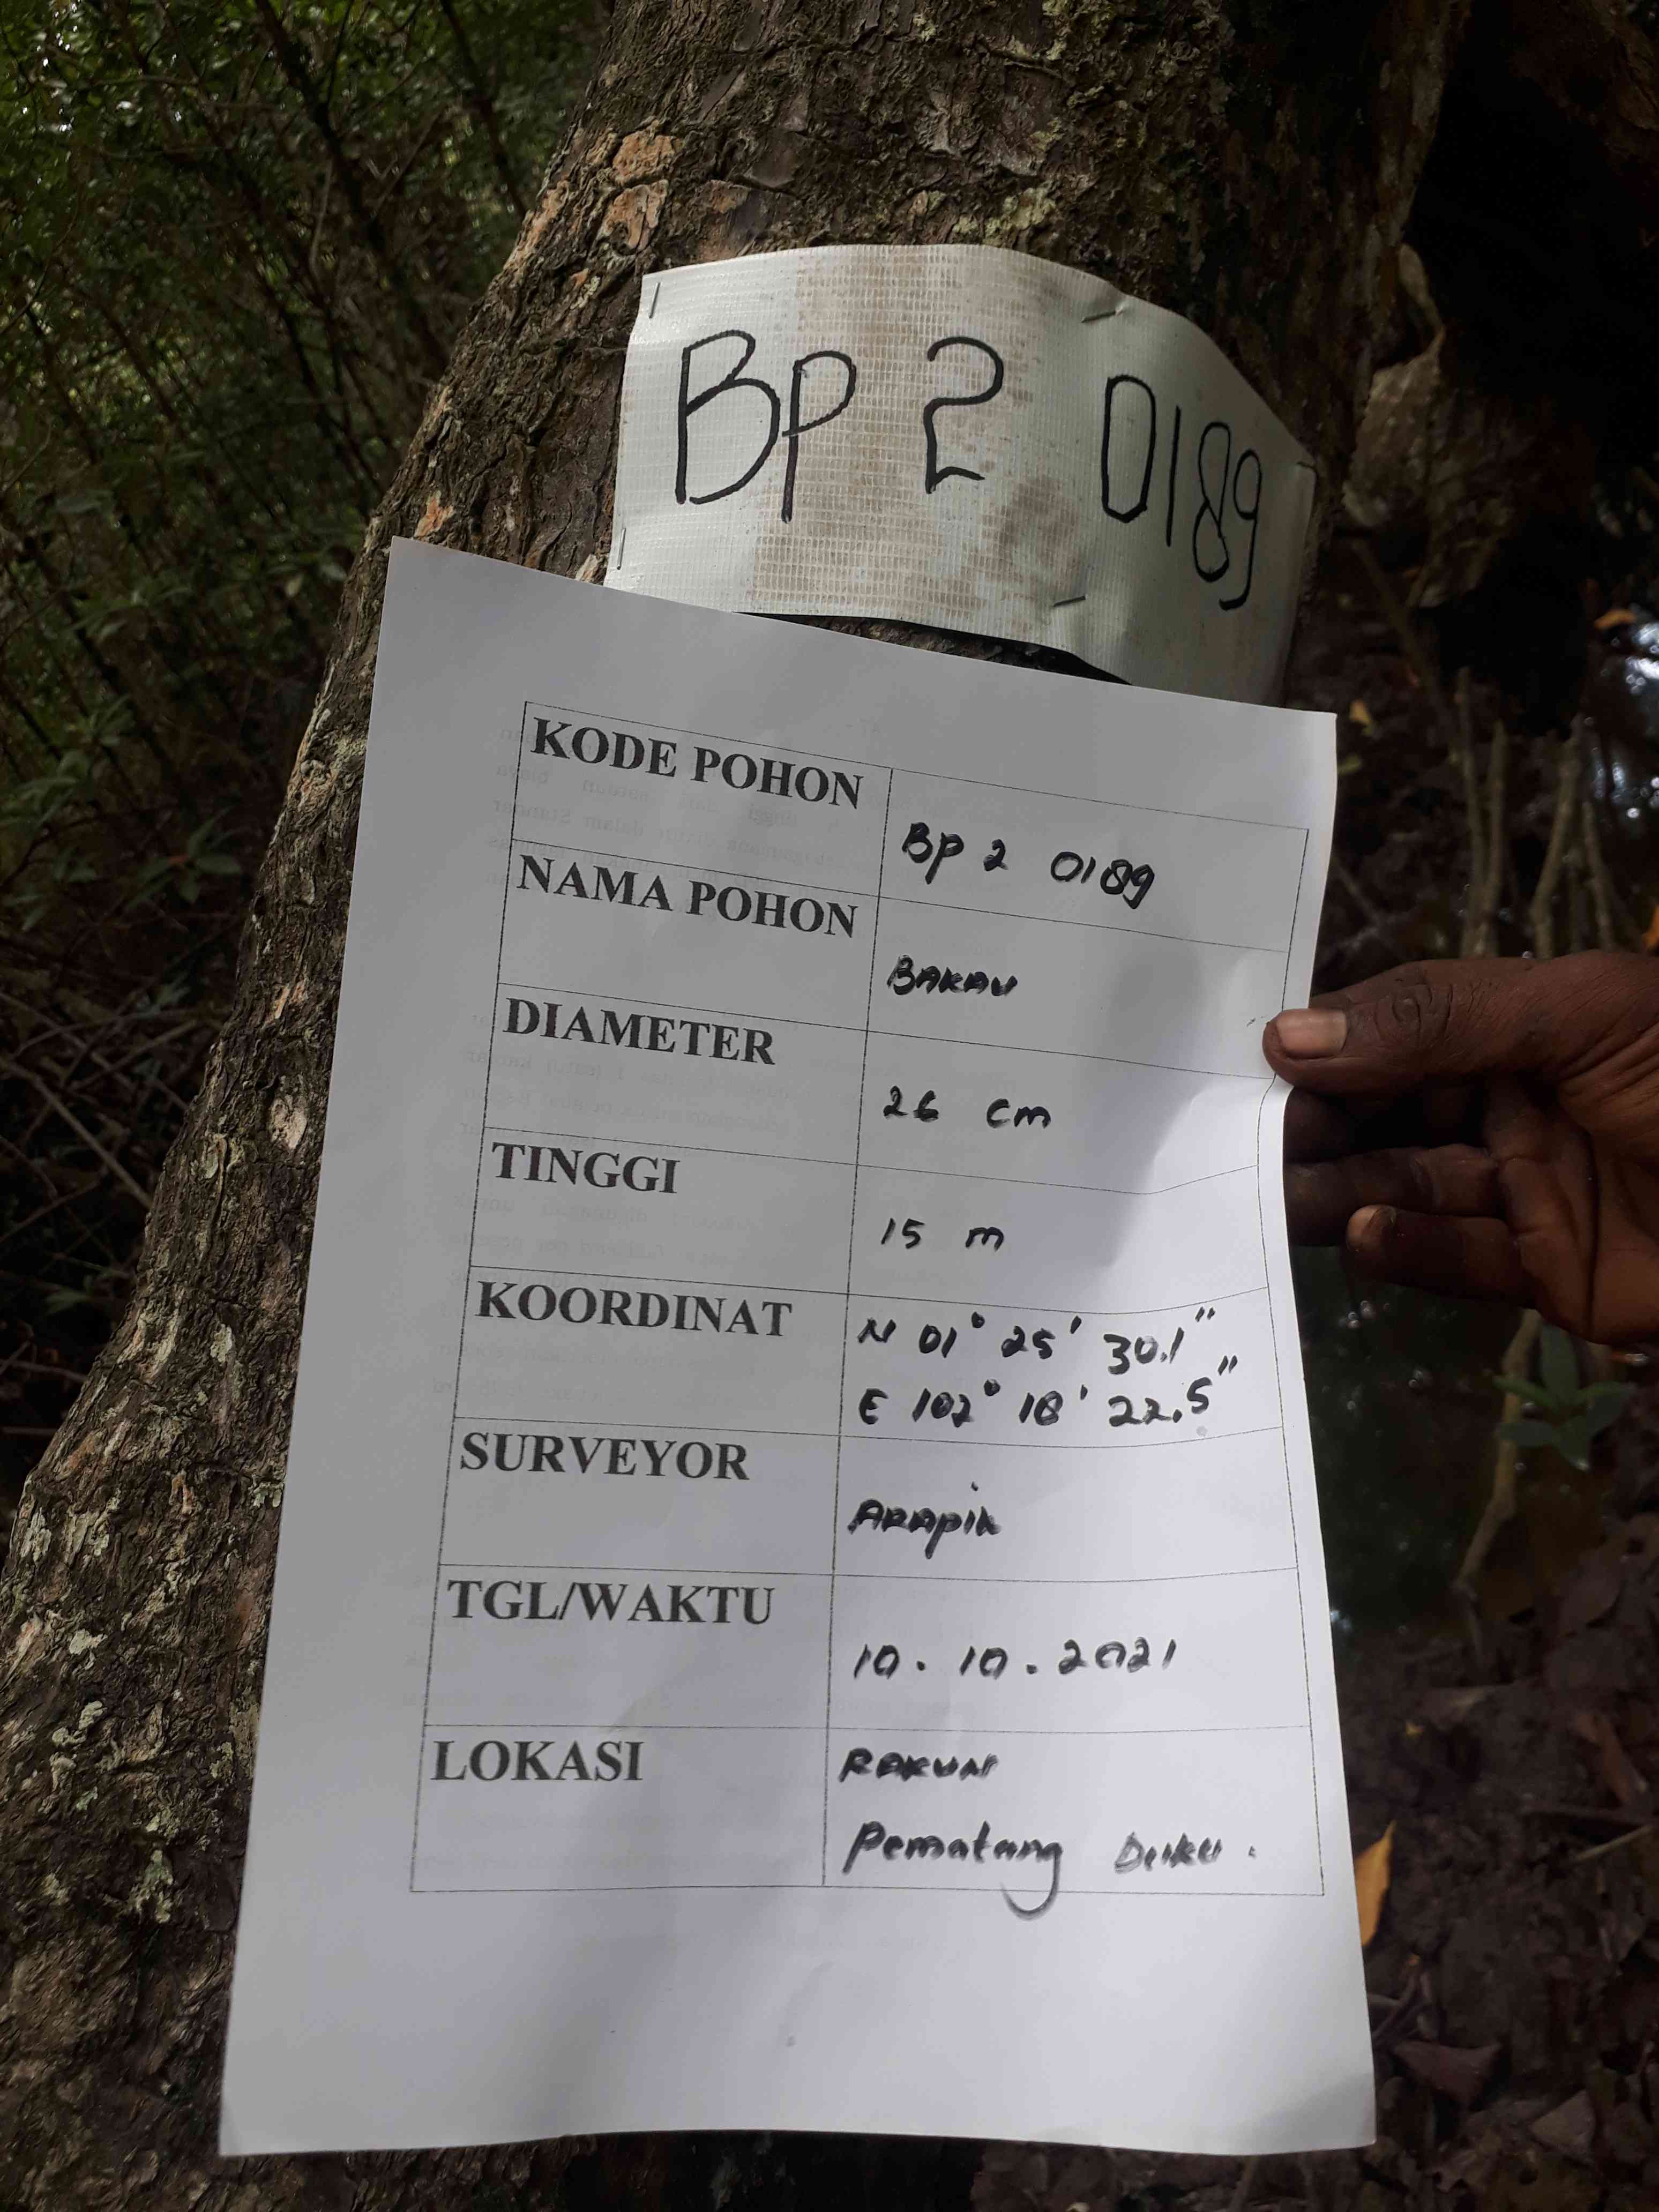 BP 2 0189
KODE POHON
BP 2 0189
NAMA POHON
BAKAU
DIAMETER
26 cm
TINGGI
15 m
KOORDINAT
N 01° 25' 30.1"
E 102° 18' 22.5"
SURVEYOR
ARAPIK
TGL/WAKTU
10. 10. 2021
LOKASI
RAKUN
Pematang Duku.